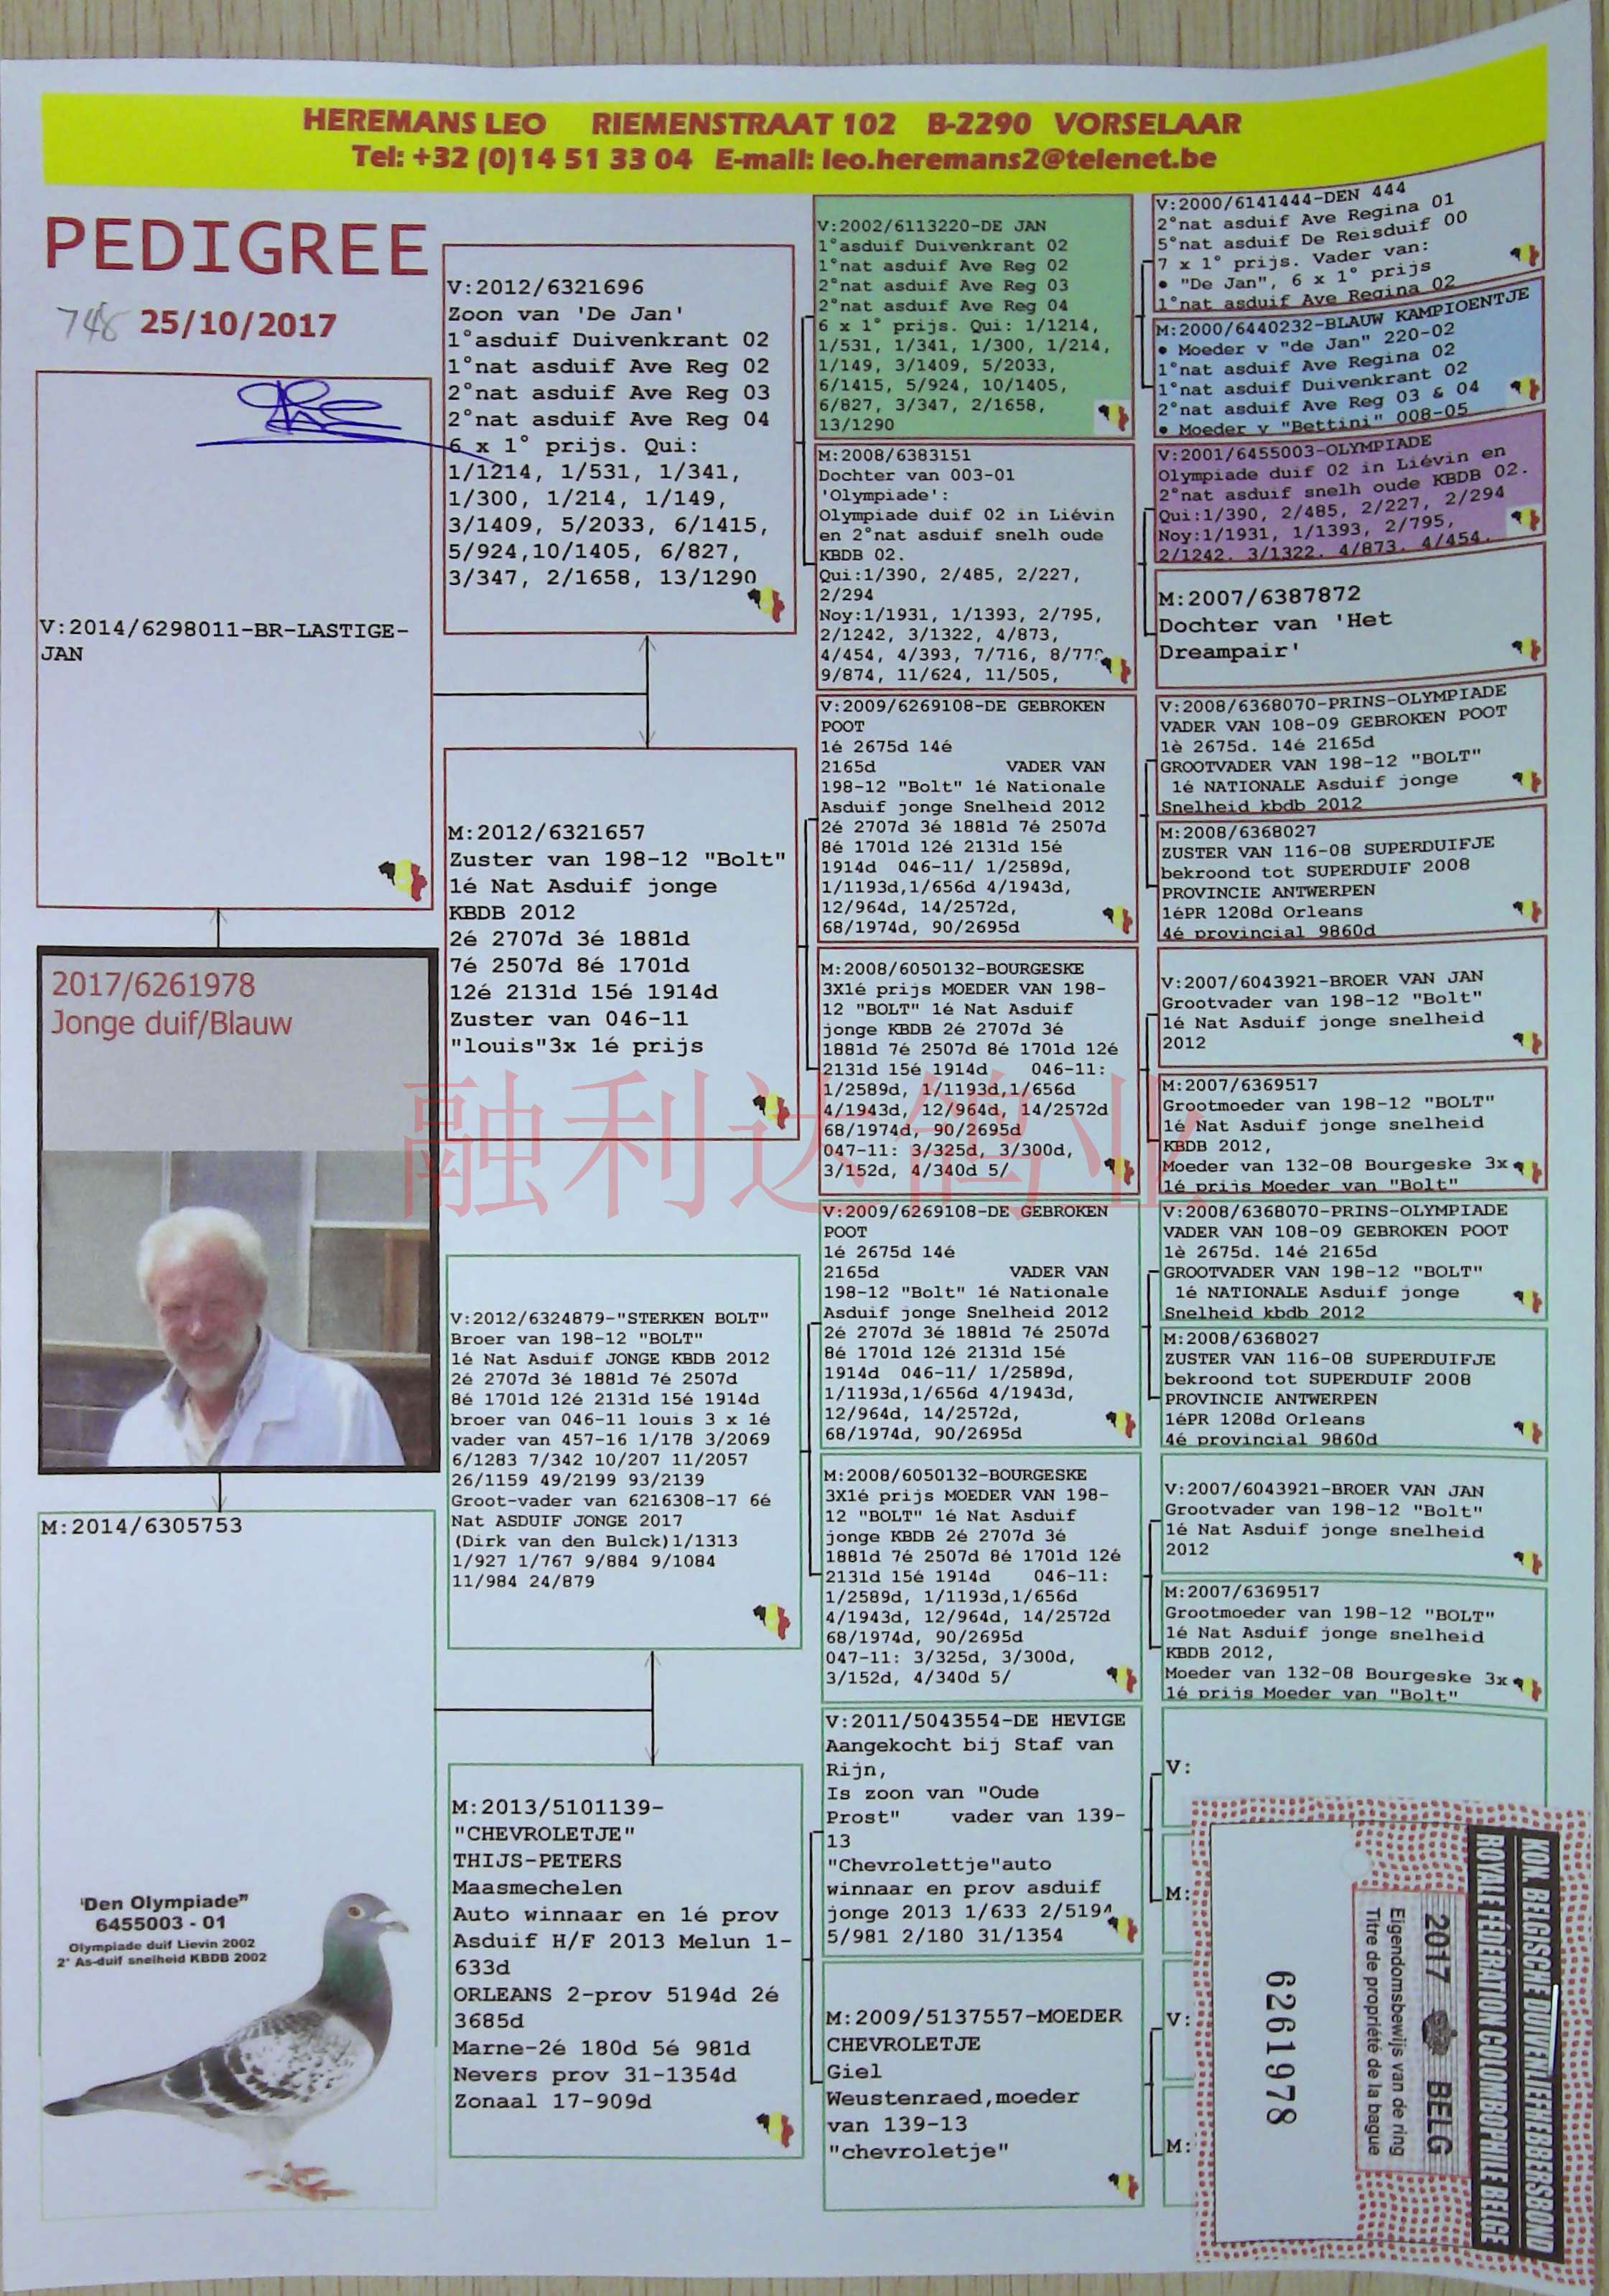 HEREMANS LEO RIEMENSTRAAT 102 B-2290 VORSELAAR
Tel: +32 (0)14 51 33 04 E-mail: leo.heremans2@telenet.be
PEDIGREE
748 25/10/2017
V:2014/6298011-BR-LASTIGE-
JAN
2017/6261978
Jonge duif/Blauw
M:2014/6305753
'Den Olympiade"
6455003 - 01
Olympiade duif Lievin 2002
2° As-duif snelheid KBDB 2002
V:2012/6321696
Zoon van 'De Jan'
1°asduif Duivenkrant 02
1°nat asduif Ave Reg 02
2°nat asduif Ave Reg 03
2°nat asduif Ave Reg 04
6 x 1° prijs. Qui:
1/1214, 1/531, 1/341,
1/300, 1/214, 1/149,
3/1409, 5/2033, 6/1415,
5/924,10/1405, 6/827,
3/347, 2/1658, 13/1290
M:2012/6321657
Zuster van 198-12 "Bolt"
1é Nat Asduif jonge
KBDB 2012
2é 2707d 3é 1881d
7é 2507d 8é 1701d
12é 2131d 15é 1914d
Zuster van 046-11
"louis"3x 1é prijs
V:2012/6324879-"STERKEN BOLT"
Broer van 198-12 "BOLT"
1é Nat Asduif JONGE KBDB 2012
2é 2707d 3é 1881d 7é 2507d
8é 1701d 12é 2131d 15é 1914d
broer van 046-11 louis 3 x 1é
vader van 457-16 1/178 3/2069
6/1283 7/342 10/207 11/2057
26/1159 49/2199 93/2139
Groot-vader van 6216308-17 6é
Nat ASDUIF JONGE 2017
(Dirk van den Bulck)1/1313
1/927 1/767 9/884 9/1084
11/984 24/879
M:2013/5101139-
"CHEVROLETJE"
THIJS-PETERS
Maasmechelen
Auto winnaar en 1é prov
Asduif H/F 2013 Melun 1-
633d
ORLEANS 2-prov 5194d 2é
3685d
Marne-2é 180d 5é 981d
Nevers prov 31-1354d
Zonaal 17-909d
V:2002/6113220-DE JAN
1°asduif Duivenkrant 02
1°nat asduif Ave Reg 02
2°nat asduif Ave Reg 03
2°nat asduif Ave Reg 04
6 x 1° prijs. Qui: 1/1214,
1/531, 1/341, 1/300, 1/214,
1/149, 3/1409, 5/2033,
6/1415, 5/924, 10/1405,
6/827, 3/347, 2/1658,
13/1290
M:2008/6383151
Dochter van 003-01
'Olympiade':
Olympiade duif 02 in Liévin
en 2°nat asduif snelh oude
KBDB 02.
Qui:1/390, 2/485, 2/227,
2/294
Noy:1/1931, 1/1393, 2/795,
2/1242, 3/1322, 4/873,
4/454, 4/393, 7/716,
9/874, 11/624, 11/505,
V:2009/6269108-DE GEBROKEN
POOT
1é 2675d 14é
2165d VADER VAN
198-12 "Bolt" 1é Nationale
Asduif jonge Snelheid 2012
2é 2707d 3é 1881d 7é 2507d
8é 1701d 12é 2131d 15é
1914d 046-11/ 1/2589d,
1/1193d,1/656d 4/1943d,
12/964d, 14/2572d,
68/1974d, 90/2695d
M:2008/6050132-BOURGESKE
3X1é prijs MOEDER VAN 198-
12 "BOLT" 1é Nat Asduif
jonge KBDB 2é 2707d 3é
1881d 7é 2507d 8é 1701d 12é
2131d 15é 1914d 046-11:
1/2589d, 1/1193d,1/656d
4/1943d, 12/964d, 14/2572d
68/1974d, 90/2695d
047-11: 3/325d, 3/300d,
3/152d, 4/340d 5/
V:2009/6269108-DE GEBROKEN
POOT
1é 2675d 14é
2165d VADER VAN
198-12 "Bolt" 1é Nationale
Asduif jonge Snelheid 2012
2é 2707d 3é 1881d 7é 2507d
8é 1701d 12é 2131d 15é
1914d 046-11/ 1/2589d,
1/1193d,1/656d 4/1943d,
12/964d, 14/2572d,
68/1974d, 90/2695d
M:2008/6050132-BOURGESKE
3X1é prijs MOEDER VAN 198-
12 "BOLT" 1é Nat Asduif
jonge KBDB 2é 2707d 3é
1881d 7é 2507d 8é 1701d 12é
2131d 15é 1914d 046-11:
1/2589d, 1/1193d,1/656d
4/1943d, 12/964d, 14/2572d
68/1974d, 90/2695d
047-11: 3/325d, 3/300d,
3/152d, 4/340d 5/
V:2011/5043554-DE HEVIGE
Aangekocht bij Staf van
Rijn,
Is zoon van "Oude
Prost" vader van 139-
13
"Chevrolettje"auto
winnaar en prov asduif
jonge 2013 1/633 2/5194
5/981 2/180 31/1354
M:2009/5137557-MOEDER
CHEVROLETJE
Giel
Weustenraed,moeder
van 139-13
"chevroletje"
V:2000/6141444-DEN 444
2°nat asduif Ave Regina 01
5°nat asduif De Reisduif 00
7 x 1° prijs. Vader van:
• "De Jan", 6 x 1° prijs
1°nat asduif Ave Regina 02
M:2000/6440232-BLAUW KAMPIOENTJE
• Moeder v "de Jan" 220-02
1°nat asduif Ave Regina 02
1°nat asduif Duivenkrant 02
2°nat asduif Ave Reg 03 & 04
• Moeder v "Bettini" 008-05
V:2001/6455003-OLYMPIADE
Olympiade duif 02 in Liévin en
2°nat asduif snelh oude KBDB 02.
Qui:1/390, 2/485, 2/227, 2/294
Noy:1/1931, 1/1393, 2/795,
2/1242. 3/1322. 4/873. 4/454.
M:2007/6387872
Dochter van 'Het
Dreampair'
V:2008/6368070-PRINS-OLYMPIADE
VADER VAN 108-09 GEBROKEN POOT
1è 2675d. 14é 2165d
GROOTVADER VAN 198-12 "BOLT"
1é NATIONALE Asduif jonge
Snelheid kbdb 2012
M:2008/6368027
ZUSTER VAN 116-08 SUPERDUIFJE
bekroond tot SUPERDUIF 2008
PROVINCIE ANTWERPEN
1éPR 1208d Orleans
4é provincial 9860d
V:2007/6043921-BROER VAN JAN
Grootvader van 198-12 "Bolt"
1é Nat Asduif jonge snelheid
2012
M:2007/6369517
Grootmoeder van 198-12 "BOLT"
1é Nat Asduif jonge snelheid
KBDB 2012,
Moeder van 132-08 Bourgeske 3x
1é prijs Moeder van "Bolt"
V:2008/6368070-PRINS-OLYMPIADE
VADER VAN 108-09 GEBROKEN POOT
1è 2675d. 14é 2165d
GROOTVADER VAN 198-12 "BOLT"
1é NATIONALE Asduif jonge
Snelheid kbdb 2012
M:2008/6368027
ZUSTER VAN 116-08 SUPERDUIFJE
bekroond tot SUPERDUIF 2008
PROVINCIE ANTWERPEN
1éPR 1208d Orleans
4é provincial 9860d
V:2007/6043921-BROER VAN JAN
Grootvader van 198-12 "Bolt"
1é Nat Asduif jonge snelheid
2012
M:2007/6369517
Grootmoeder van 198-12 "BOLT"
1é Nat Asduif jonge snelheid
KBDB 2012,
Moeder van 132-08 Bourgeske 3x
1é prijs Moeder van "Bolt"
V:
M:
V:
M:
KON. BELGISCHE DUIVENLIEFHEBBERSBOND
ROYALE FÉDÉRATION COLOMBOPHILE BELGE
2017 BELG
Eigendomsbewijs van de ring
Titre de propriété de la bague
6261978
融利达鸽业